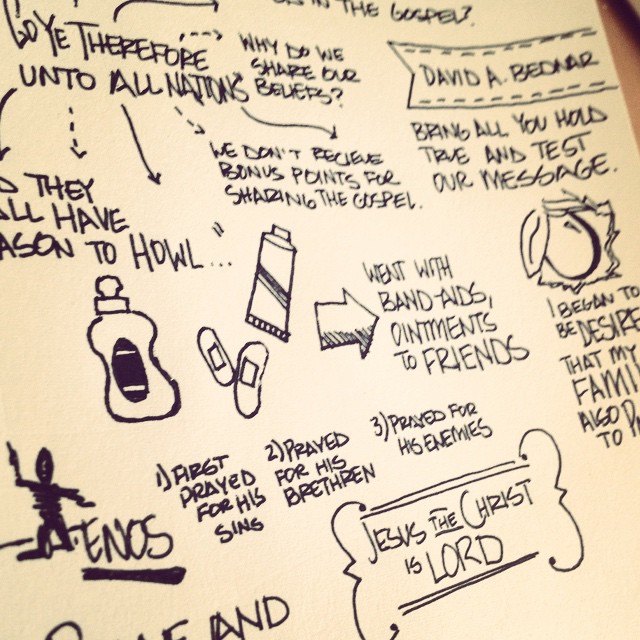 IN THE GOSPEL?
GO YE THEREFORE
UNTO ALL NATIONS
WHY DO WE
SHARE OUR
BELIEFS?
DAVID A. BEDNAR
BRING ALL YOU HOLD
TRUE AND TEST
OUR MESSAGE.
WE DON'T RECIEVE
BONUS POINTS FOR
SHARING THE GOSPEL.
THEY
HAVE
TO HOWL...
WENT WITH
BAND-AIDS,
OINTMENTS
TO FRIENDS
I BEGAN TO
BE DESIRE
THAT MY
FAMI
ALSO
TO
1) FIRST
PRAYED
FOR HIS
SINS
2) PRAYED
FOR HIS
BRETHREN
3) PRAYED FOR
HIS ENEMIES
ENOS
JESUS THE CHRIST
IS LORD
AND